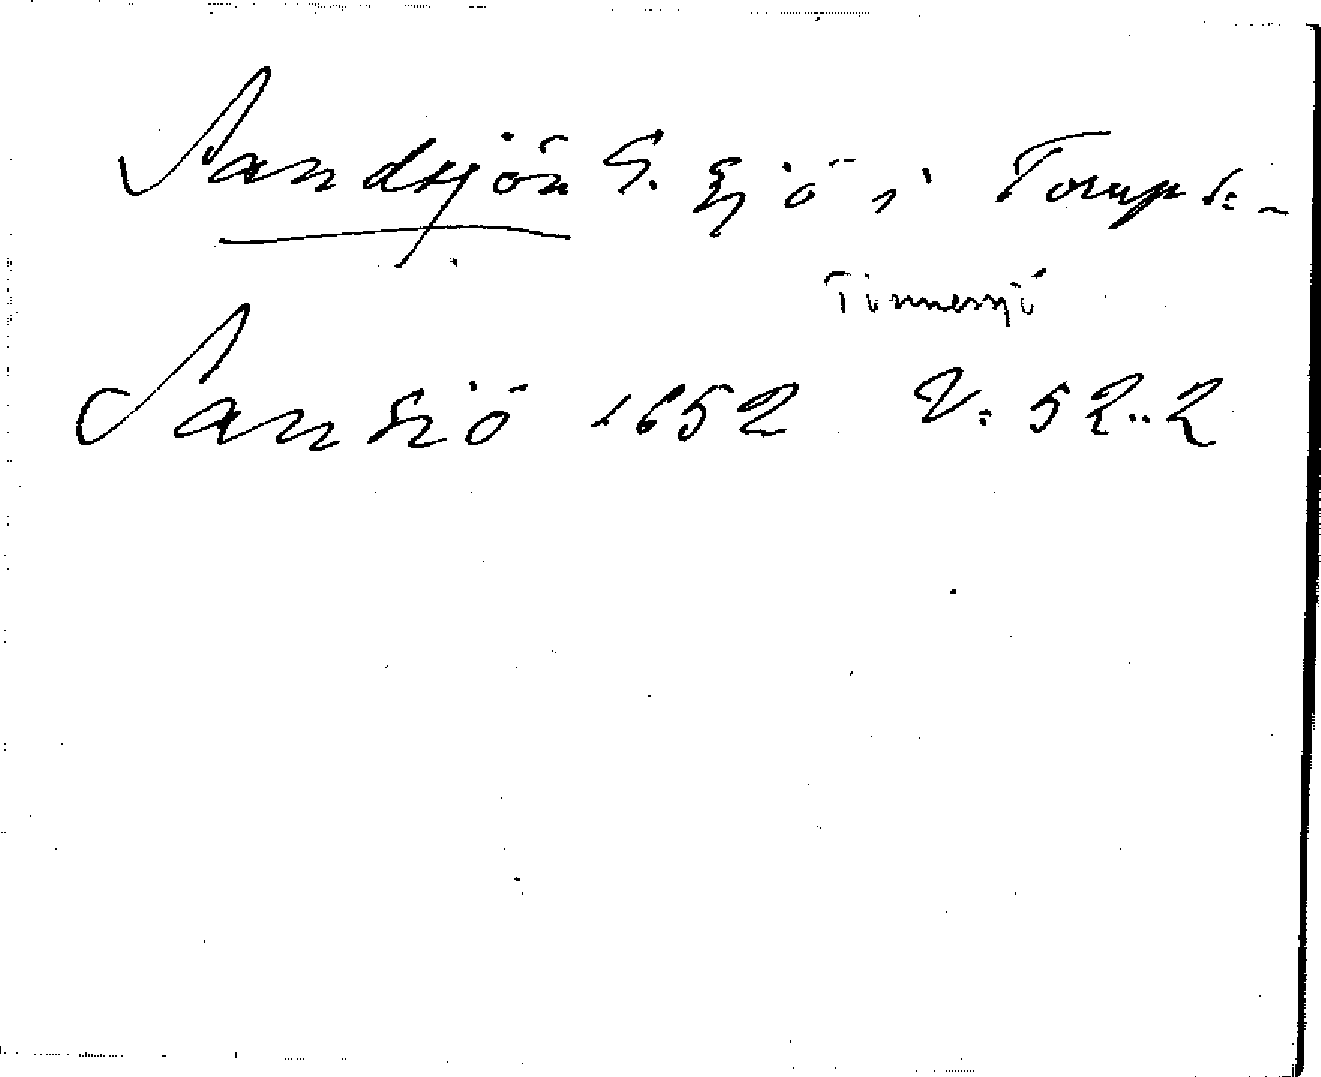 Sandsjön S. sjö i Torup s:
Tinnesjö
Sansiö 1652 V: 52..2